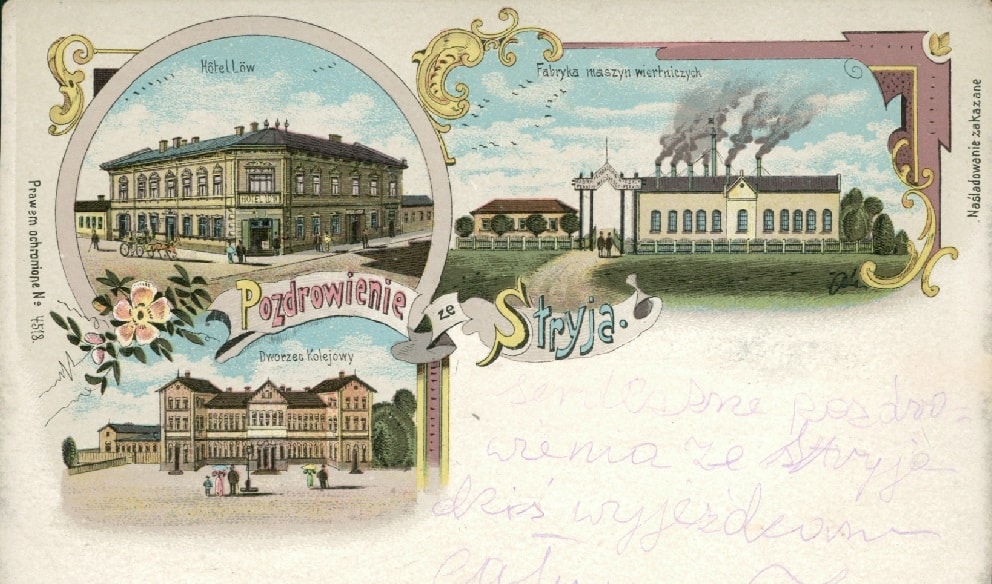 Hôtel Löw
HOTEL LÖW
Fabryka maszyn wiertniczych
Naśladowanie zakazane
Prawem ochronione № 4518.
Pozdrowienie ze Stryja.
Dworzec Kolejowy
serdeczne pozdro-
wienia ze Stryja
dziś wyjeżdżam